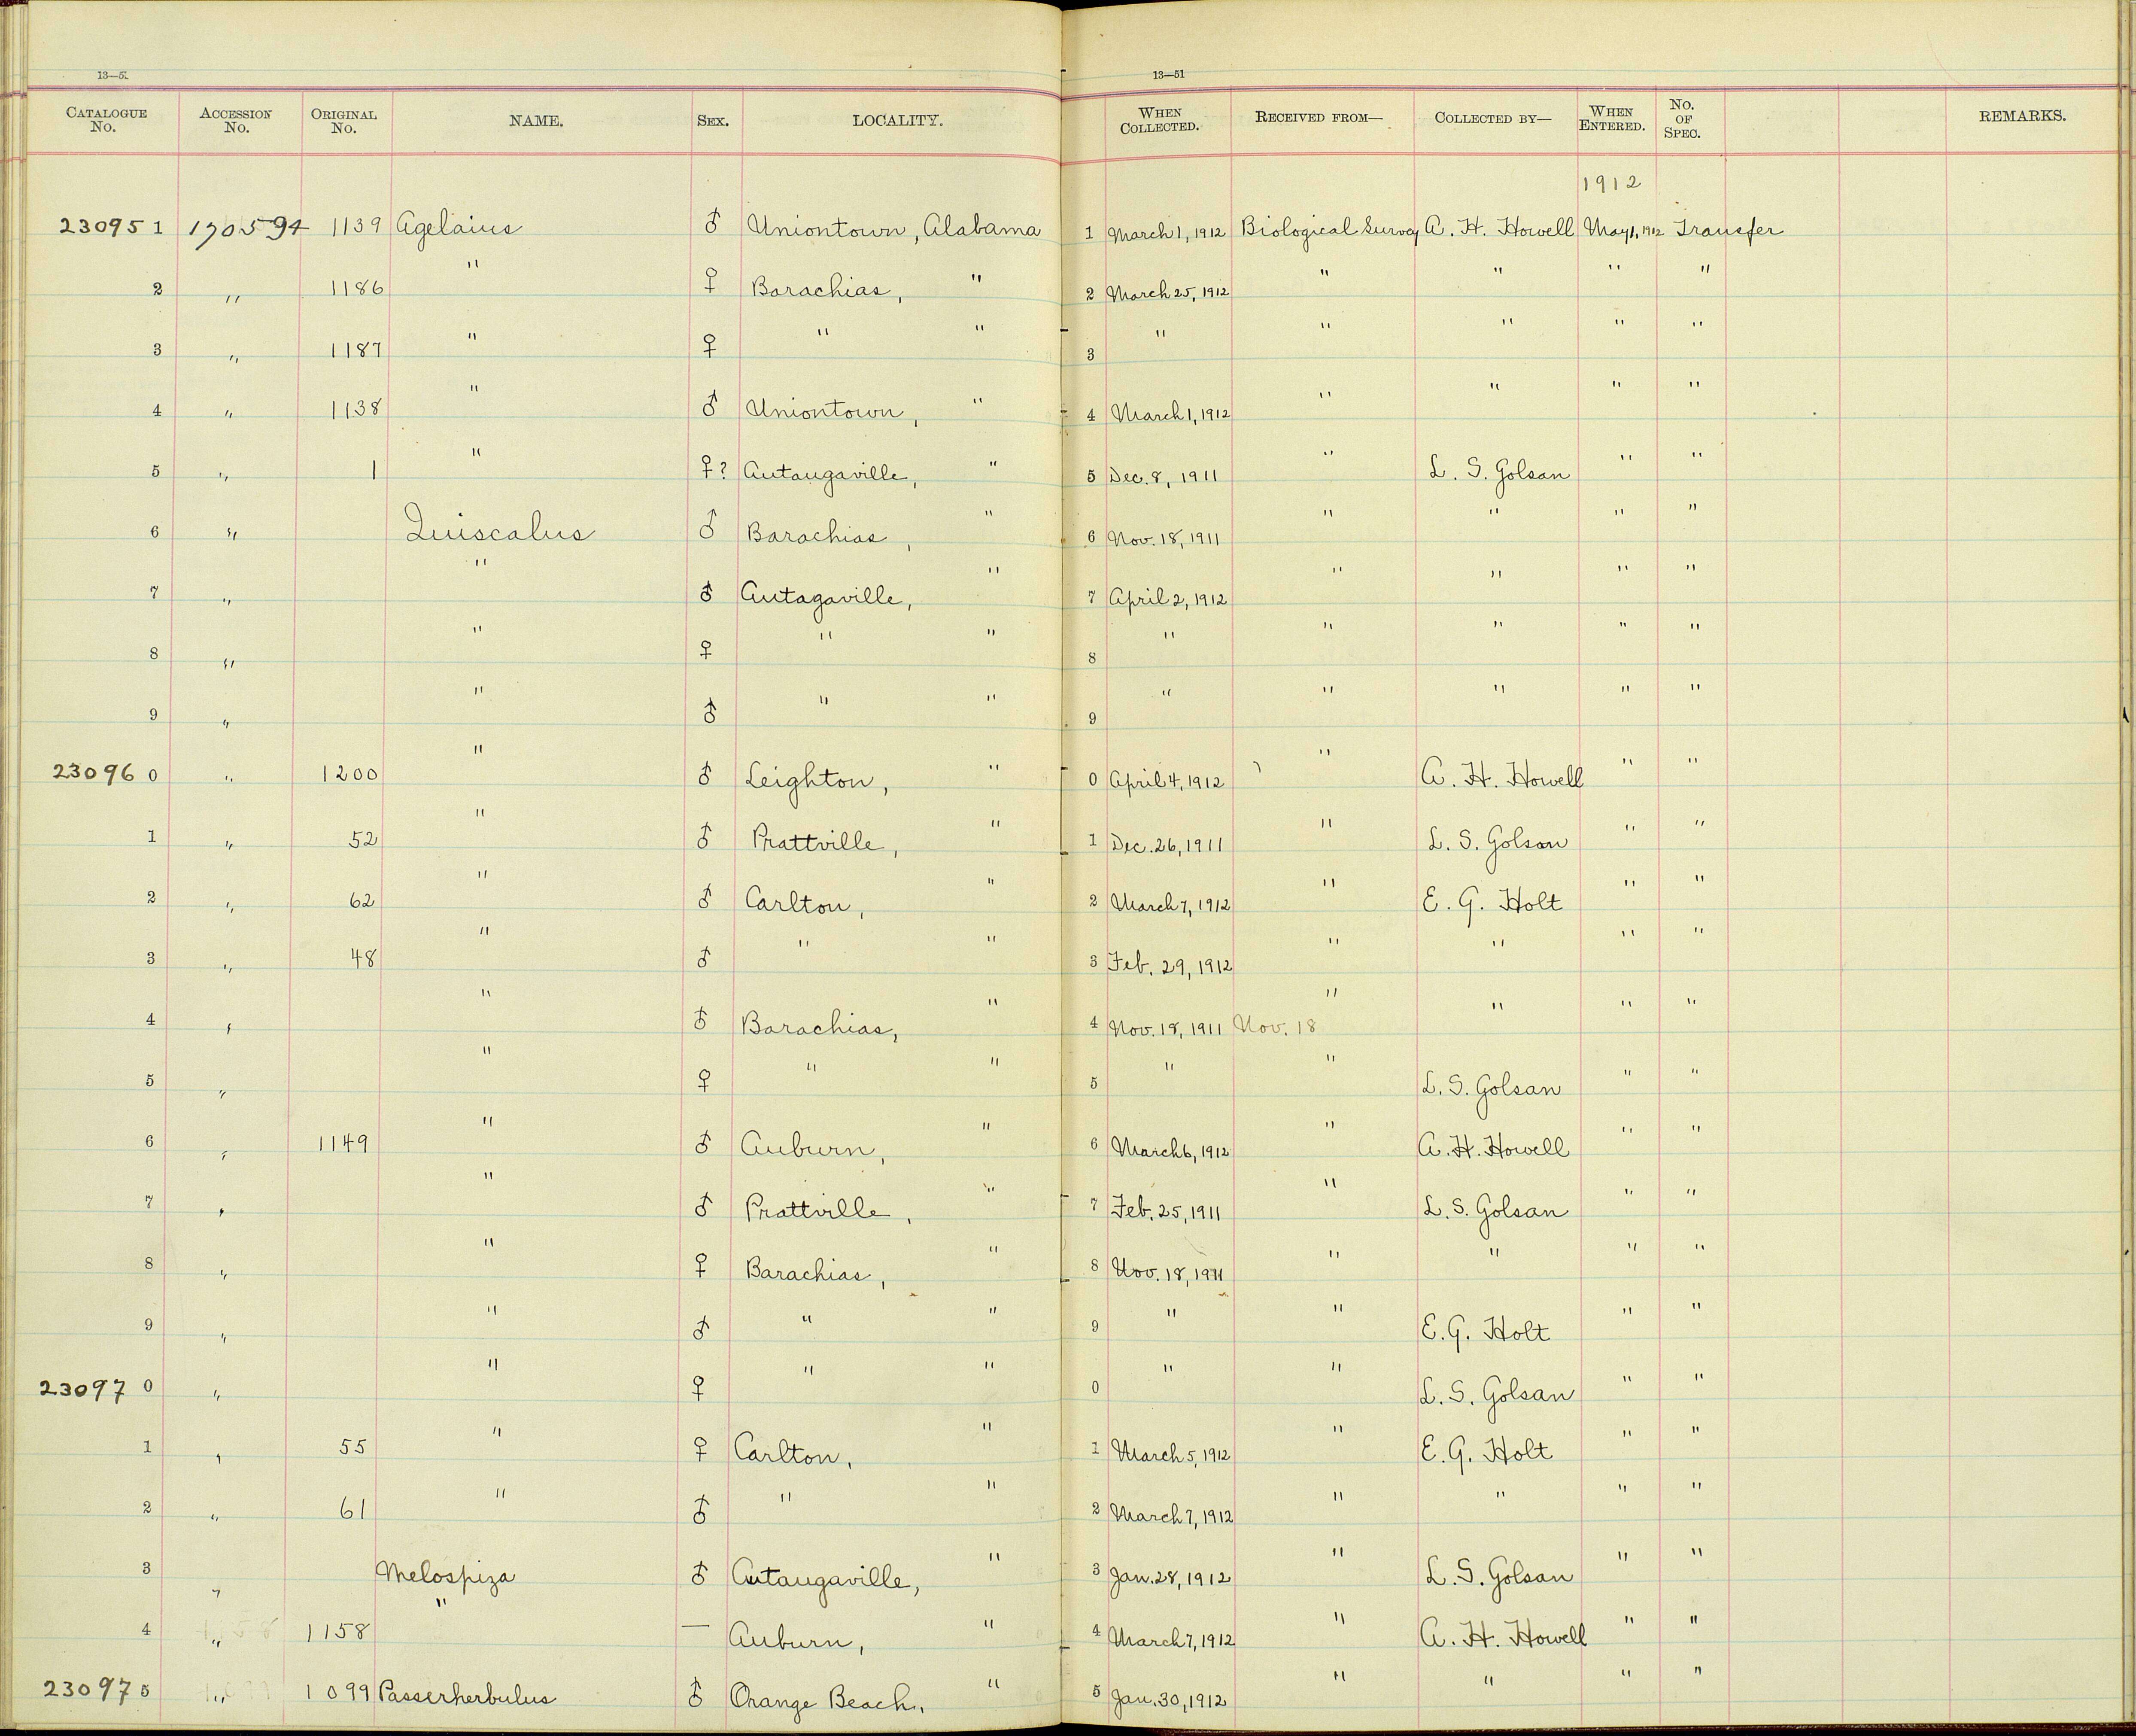 13—51
CATALOGUE No. ACCESSION No. ORIGINAL No. NAME. SEX. LOCALITY. WHEN COLLECTED. RECEIVED FROM— COLLECTED BY— WHEN ENTERED. No. OF SPEC. REMARKS.
1912
230951 170594 1139 Agelaius ♂ Uniontown, Alabama 1 March 1, 1912 Biological Survey A. H. Howell May 1, 1912 Transfer
2 " 1186 " ♀ Barachias, " 2 March 25, 1912 " " " "
3 " 1187 " ♀ " " 3 " " " " "
4 " 1138 " ♂ Uniontown, " 4 March 1, 1912 " " " "
5 " 1 " ♀? Autaugaville, " 5 Dec. 8, 1911 " L. S. Golsan " "
6 " Quiscalus ♂ Barachias, " 6 Nov. 18, 1911 " " " "
7 " " ♂ Autagaville, " 7 April 2, 1912 " " " "
8 " " ♀ " " 8 " " " " "
9 " " ♂ " " 9 " " " " "
230960 " 1200 " ♂ Leighton, " 0 April 4, 1912 " A. H. Howell " "
1 " 52 " ♂ Prattville, " 1 Dec. 26, 1911 " L. S. Golsan " "
2 " 62 " ♂ Carlton, " 2 March 7, 1912 " E. G. Holt " "
3 " 48 " ♂ " " 3 Feb. 29, 1912 " " " "
4 " " ♂ Barachias, " 4 Nov. 18, 1911 Nov. 18 " " " "
5 " " ♀ " " 5 " " L. S. Golsan " "
6 " 1149 " ♂ Auburn, " 6 March 6, 1912 " A. H. Howell " "
7 " " ♂ Prattville, " 7 Feb. 25, 1911 " L. S. Golsan " "
8 " " ♀ Barachias, " 8 Nov. 18, 1911 " " " "
9 " " ♂ " " 9 " " E. G. Holt " "
230970 " " ♀ " " 0 " " L. S. Golsan " "
1 " 55 " ♀ Carlton, " 1 March 5, 1912 " E. G. Holt " "
2 " 61 " ♂ " " 2 March 7, 1912 " " " "
3 " Melospiza ♂ Autaugaville, " 3 Jan. 28, 1912 " L. S. Golsan " "
4 " 1158 " — Auburn, " 4 March 7, 1912 " A. H. Howell " "
230975 " 1099 Passerherbulus ♂ Orange Beach, " 5 Jan. 30, 1912 " " " "